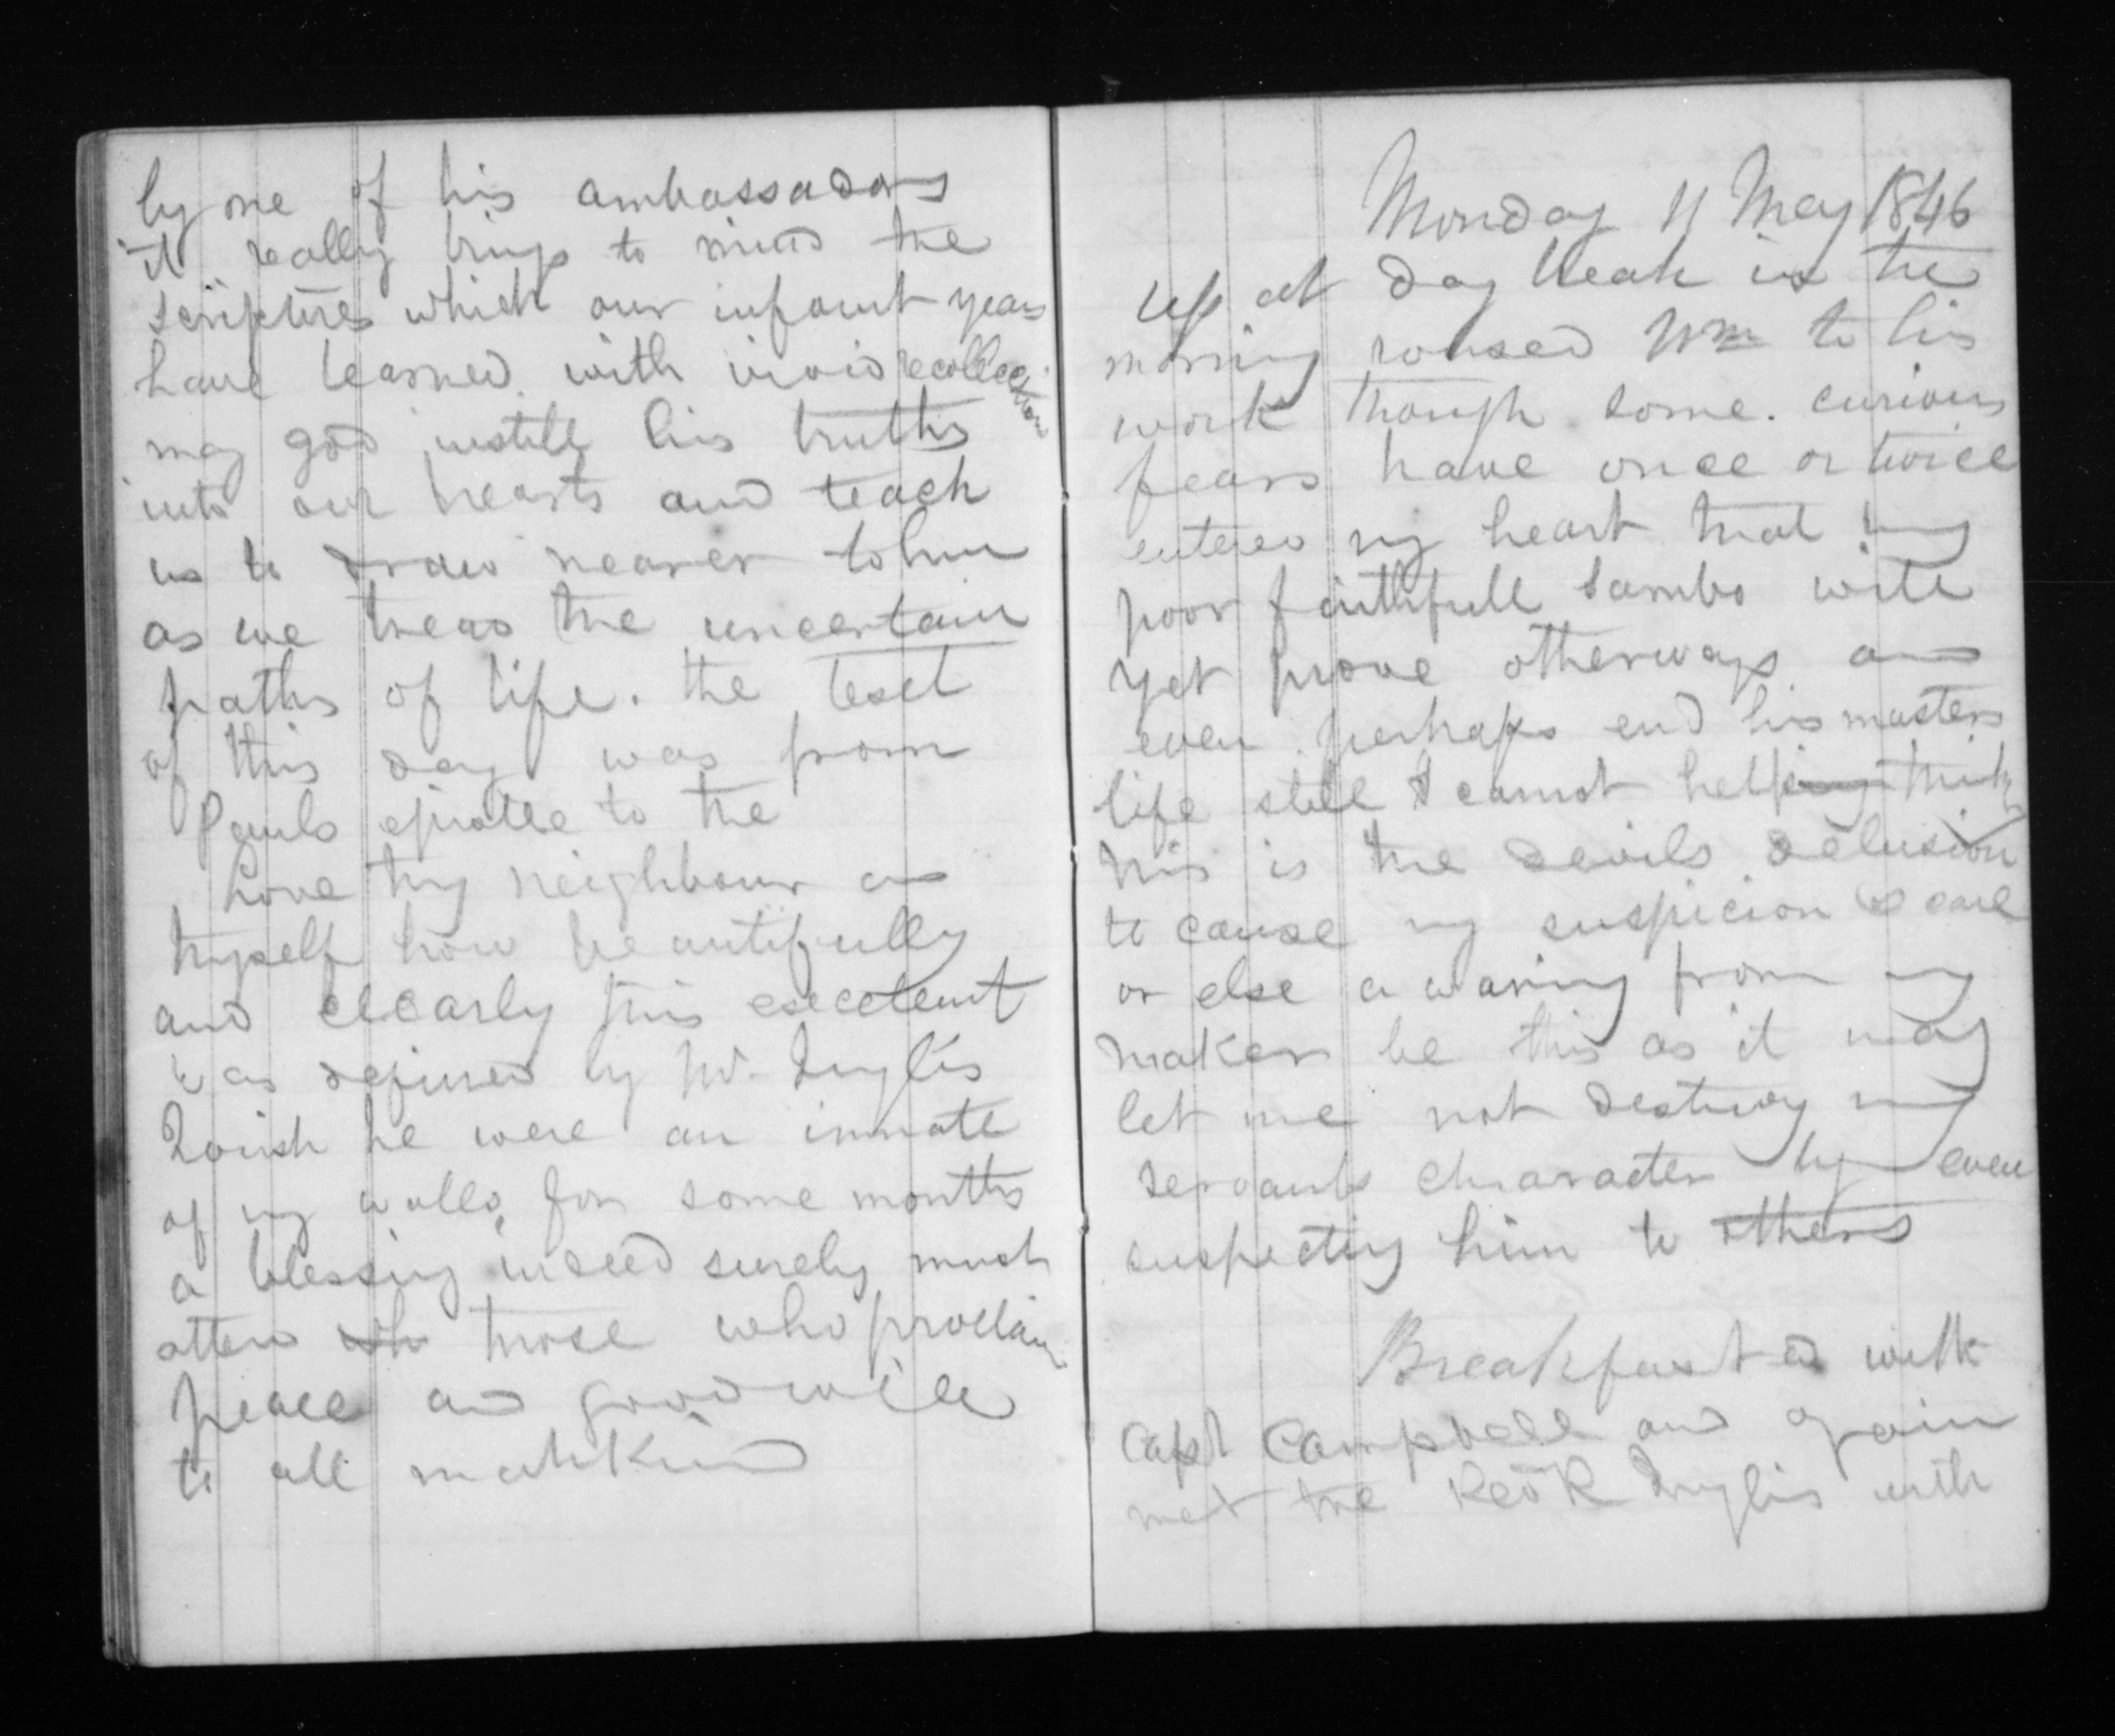 by one of his ambassadors
it really brings to mind the
scriptures which our infant years
have learned with vivid recollection
may god instill his truths
into our hearts and teach
us to draw nearer to him
as we tread the uncertain
paths of life. the text
of this day was from
Pauls epistle to the
Love thy neighbour as
thyself how beautifully
and clearly this excellent
was defined by Mr. Inglis
I wish he were an inmate
of my walls for some months
a blessing indeed surely must
attend those who proclaim
peace and goodwill
to all mankind
Monday 11 May 1846
up at day break in the
morning roused Wm to his
work though some. curious
fears have once or twice
entered my heart that my
poor faithfull Sambo will
yet prove otherways and
even perhaps end his masters
life still I cannot helping think
this is the devils delusion
to cause my suspicion & care
or else a warning from my
maker be this as it may
let me not destroy my
servants character by even
suspecting him to others
Breakfasted with
Capt Campbell and again
met the Revd R Inglis with